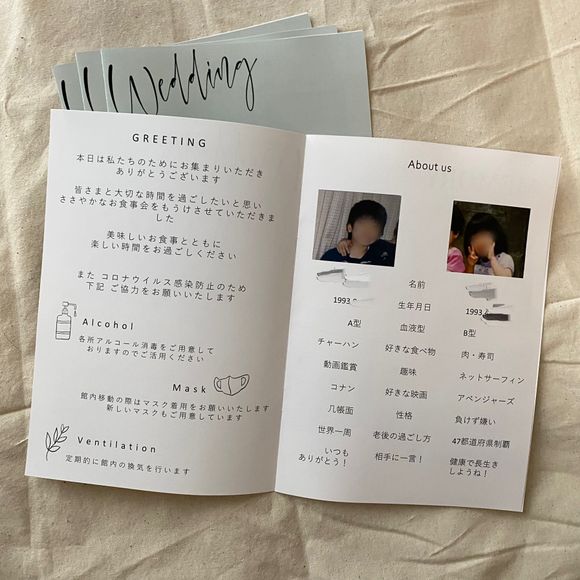 Wedding
GREETING
本日は私たちのためにお集まりいただき
ありがとうございます
皆さまと大切な時間を過ごしたいと思い
ささやかなお食事会をもうけさせていただきま
した
美味しいお食事とともに
楽しい時間をお過ごしください
また コロナウイルス感染防止のため
下記 ご協力をお願いいたします
Alcohol
各所アルコール消毒をご用意して
おりますのでご活用ください
Mask
館内移動の際はマスク着用をお願いいたします
新しいマスクもご用意しています
Ventilation
定期的に館内の換気を行います
About us
名前
1993 生年月日 1993
A型 血液型 B型
チャーハン 好きな食べ物 肉・寿司
動画鑑賞 趣味 ネットサーフィン
コナン 好きな映画 アベンジャーズ
几帳面 性格 負けず嫌い
世界一周 老後の過ごし方 47都道府県制覇
いつも 相手に一言！ 健康で長生き
ありがとう！ しようね！